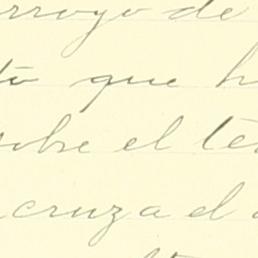 rroyo de
to que h
sobre el te
cruza el a